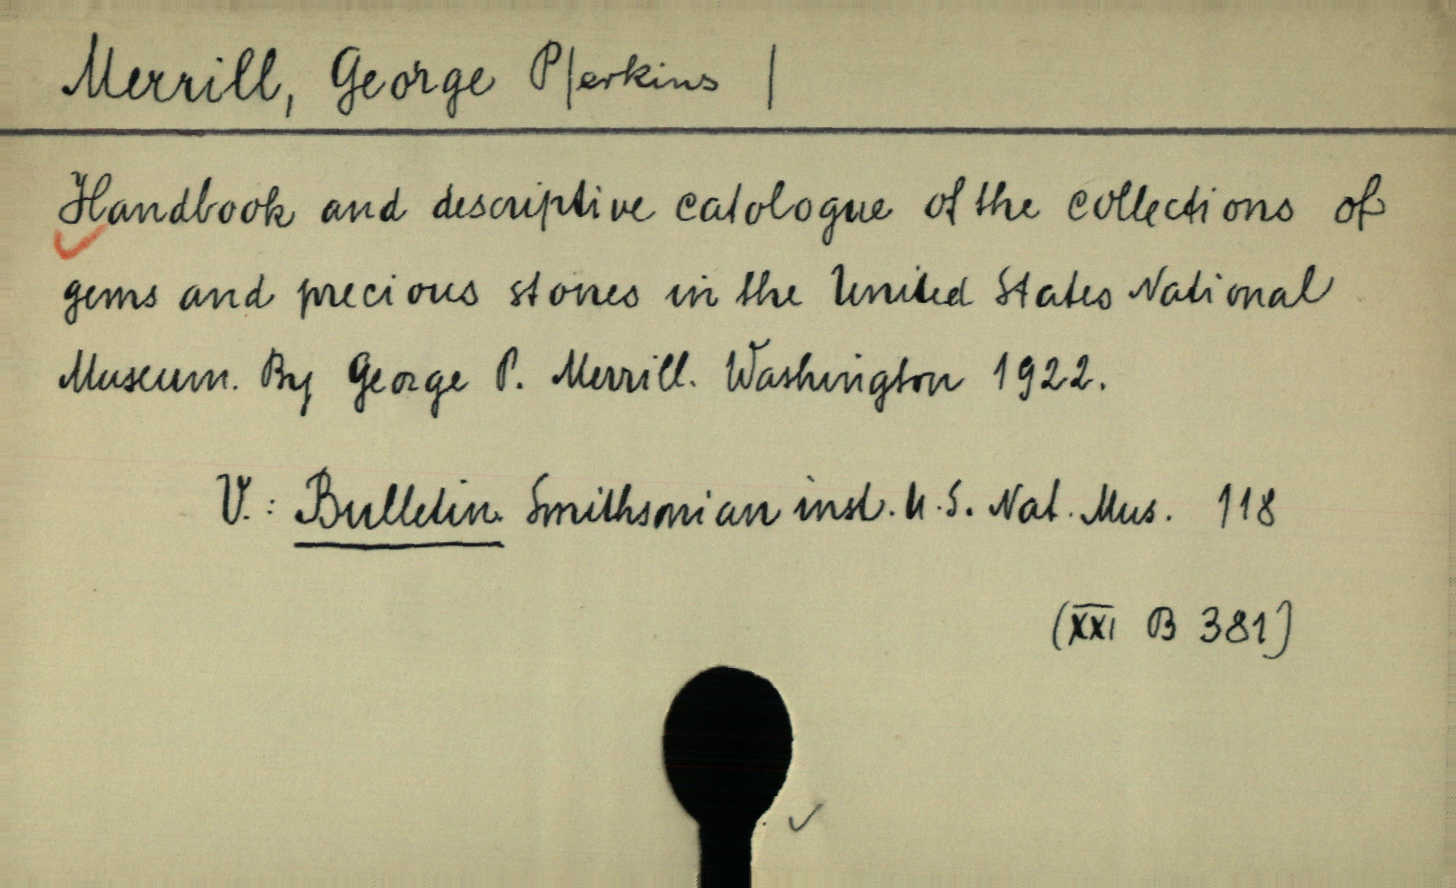 Merrill, George P|erkins |
Handbook and descriptive catologue of the collections of
gems and precious stones in the United States National
Museum. By George P. Merrill. Washington 1922.
V.: Bulletin. Smithsonian inst. U.S. Nat. Mus. 118
(XXI B 381)